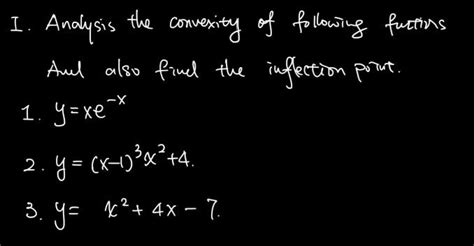 I. Analysis the convexity of following functions
And also find the inflection point.
1. y=xe^{-x}
2. y=(x-1)^3x^2+4.
3. y= x^2+4x-7.